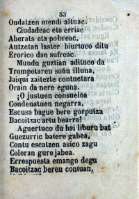 53
Ondatzen mendi altuac,
Ciudadeac eta erriac
Aberats eta pobreac,
Autzetan laster biurtuco ditu
Erorico dan sufreac.
Mundu guztian adituco da
Trompetaren soñu illuna,
Jaiqui zaitezte contuetara
Orain da nere eguna.
¡O justuen consuelua
Condenatuen negarra,
Escuas bague bere gorputza
Bacoitzac artu bearra!
Aguertuco da hoi liburu bat
Guezurric batere gabea,
Contu escatzen asico zagu
Coleran gure jabea.
Errespuesta emango degu
Bacoitzac beren contuan,